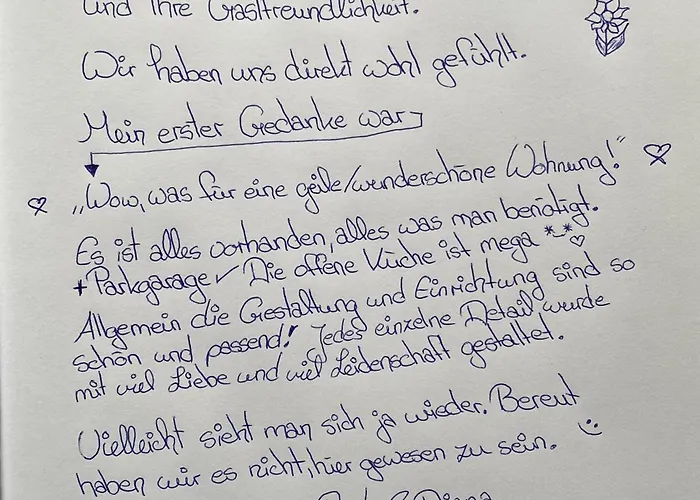 und Ihre Gastfreundlichkeit.
Wir haben uns direkt wohl gefühlt.
Mein erster Gedanke war
„Wow, was für eine geile/wunderschöne Wohnung!“
Es ist alles vorhanden, alles was man benötigt.
+ Parkgarage ✓ Die offene Küche ist mega
Allgemein die Gestaltung und Einrichtung sind so
schön und passend! Jedes einzelne Detail wurde
mit viel Liebe und viel Leidenschaft gestaltet.
Vielleicht sieht man sich ja wieder. Bereut
haben wir es nicht, hier gewesen zu sein. :)